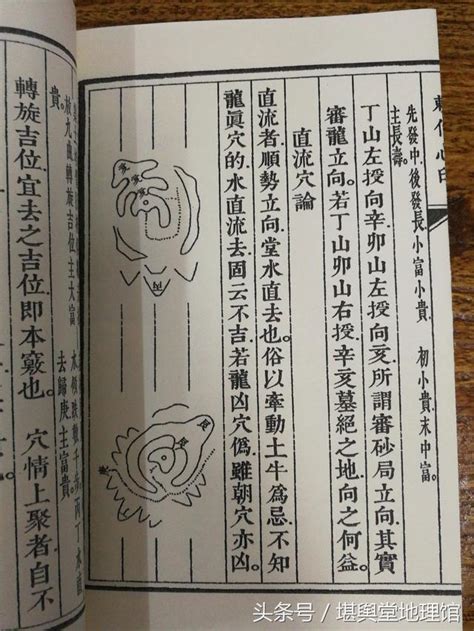 先發中後發長小富小貴 初小貴末中富
主長壽
丁山左授向辛卯山左授向亥所謂審砂局立向其實
審龍立向若丁山卯山右授辛亥墓絕之地向之何益
直流穴論
直流者順勢立向堂水直去也俗以牽動土牛為忌不知
龍眞穴的水直流去固云不吉若龍凶穴僞雖朝穴亦凶
貴
轉旋吉位主大富
去歸庚主富貴
轉旋吉位宜去之吉位即本竅也 穴情上聚者自不
头条号／堪舆堂地理馆